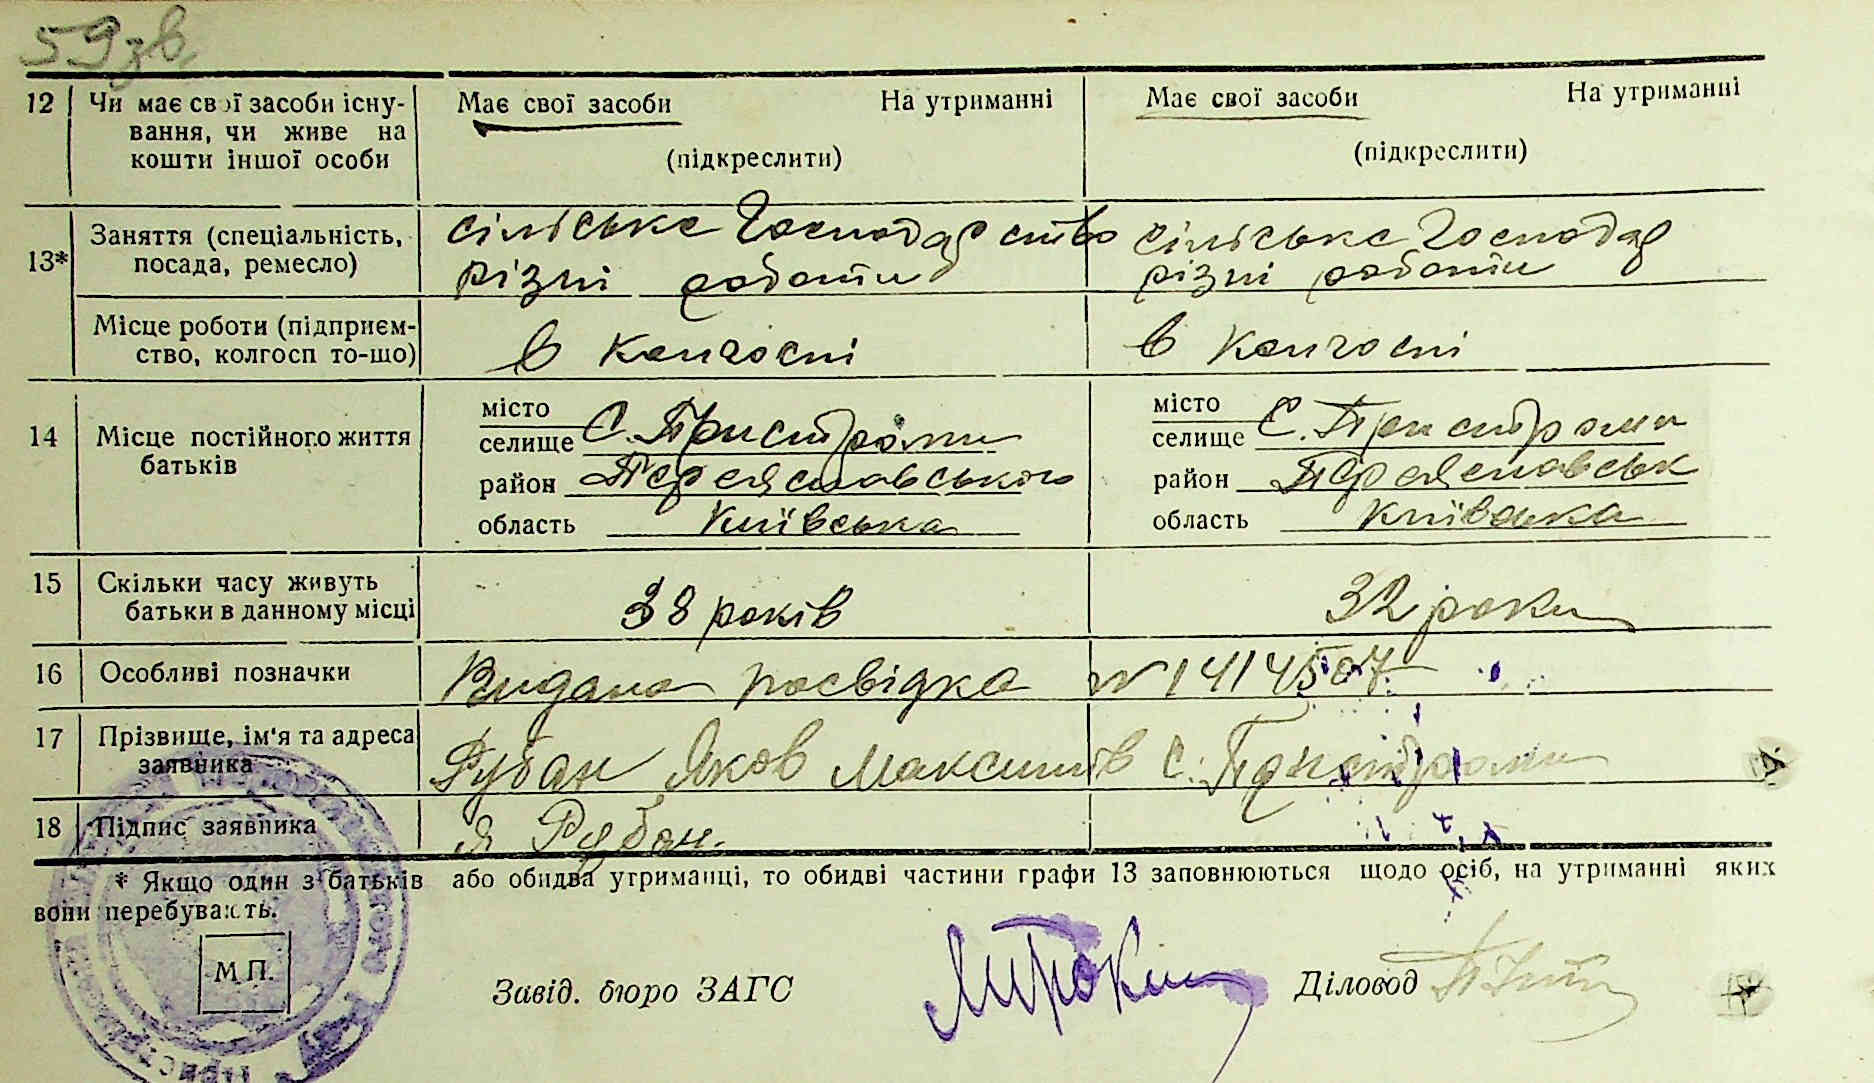 59зв
12 Чи має свої засоби існу- Має свої засоби На утриманні Має свої засоби На утриманні
вання, чи живе на
кошти іншої особи (підкреслити) (підкреслити)
13* Заняття (спеціальність, сільське господарство сільське господар
посада, ремесло) різні роботи різні роботи
Місце роботи (підприєм- в колгоспі в колгоспі
ство, колгосп то-що)
14 Місце постійного життя місто місто
батьків селище С. Пристроми селище С. Пристроми
район Переяславського район Переяславськ
область Київська область Київська
15 Скільки часу живуть 38 років 32 роки
батьки в данному місці
16 Особливі позначки Видана посвідка № 1414507
17 Прізвище, ім'я та адреса Рубан Яков Максимів С. Пристроми
заявника
18 Підпис заявника Я Рубан.
* Якщо один з батьків або обидва утриманці, то обидві частини графи 13 заповнюються щодо осіб, на утриманні яких
вони перебувають.
М П.
Завід. бюро ЗАГС Діловод